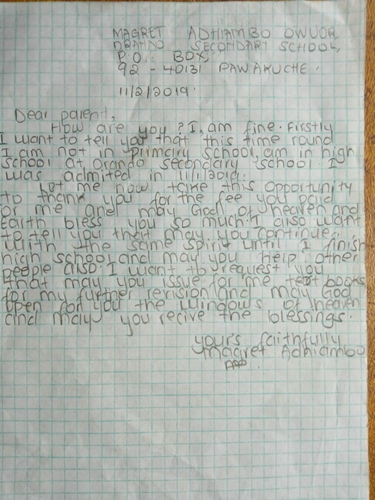 MAGRET ADHIAMBO OWUOR
ORANDO SECONDARY SCHOOL,
P.O BOX,
92 - 40131 PAWAKUCHE.
11/2/2019.
Dear parent,
How are you? I am fine. Firstly
I want to tell you that this time round
I am not in primary school, am in high
school at Orando secondary school I
was admited in 11/1/2019.
Let me now take this opportunity
to thank you for the fee you paid
for me and may God of heaven and
Earth bless you so much I also want
to tell you that may you continue
with the same spirit until I finish
high school and may you help other
people also I want to request you
that may you issue for me books
for my further revision and may God
open for you the windows of heaven
and may you recive the blessings.
yours faithfully
Magret Adhiambo